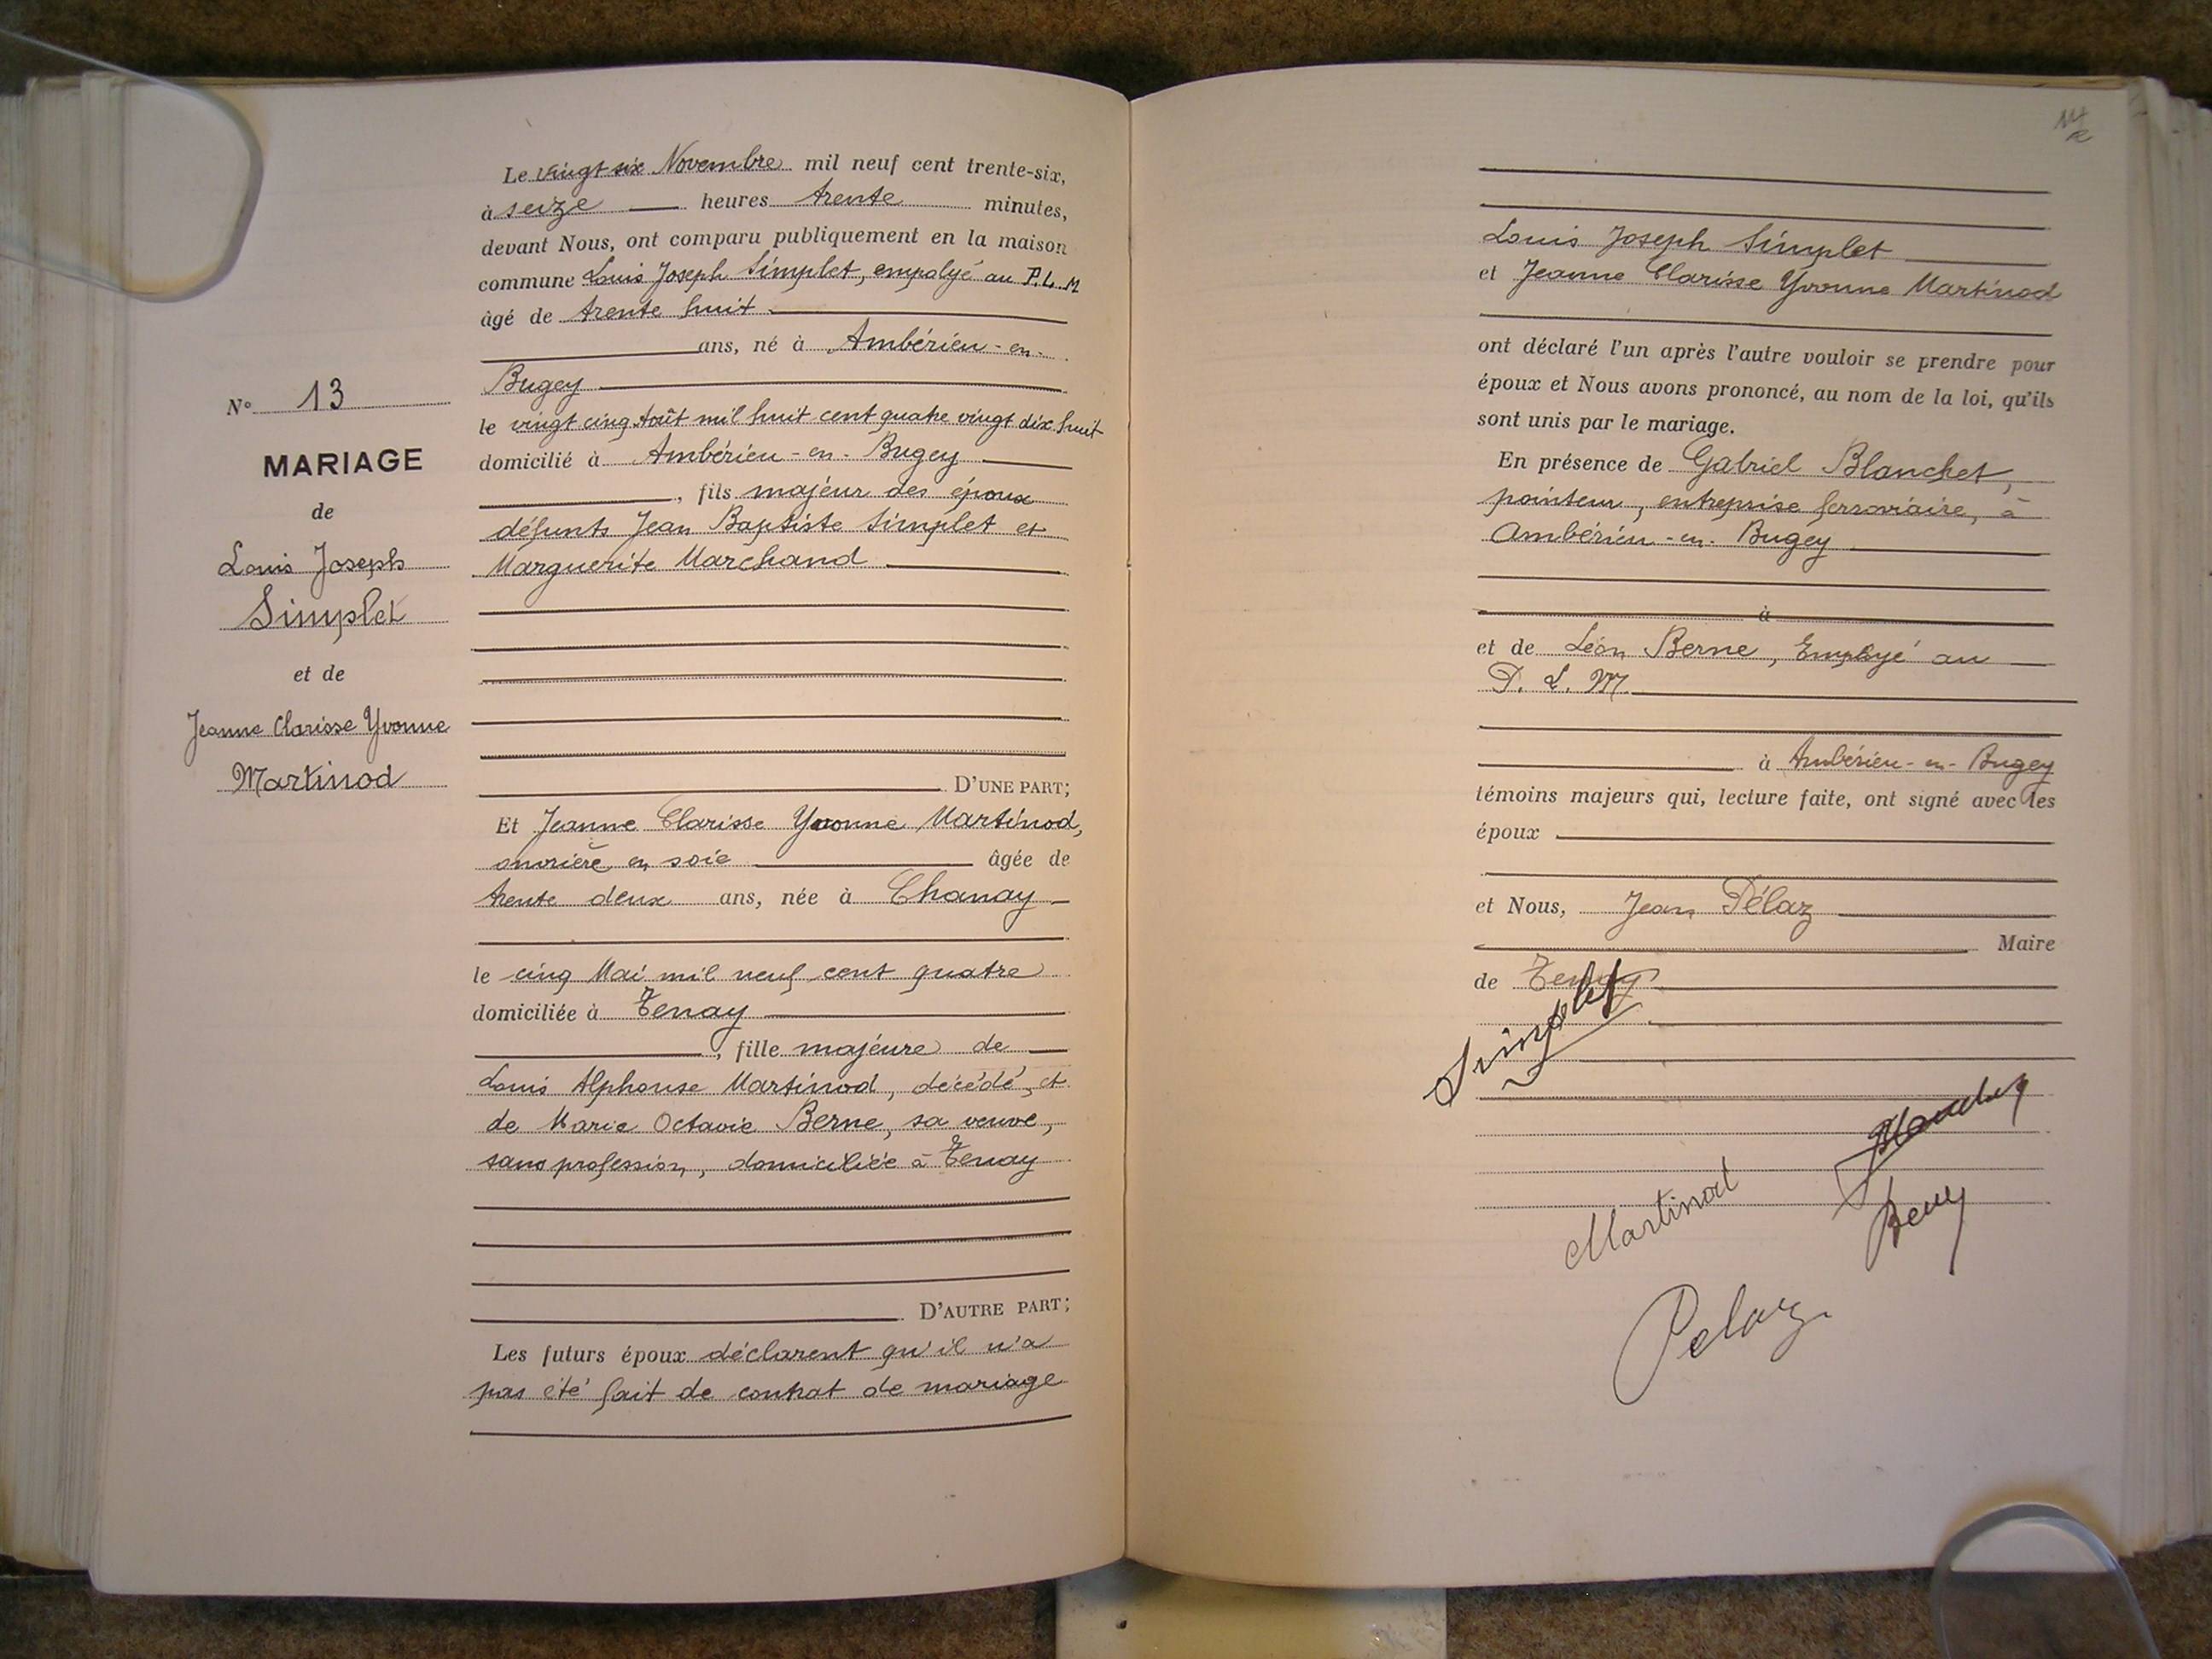 N° 13
MARIAGE
de
Louis Joseph
Simplet
et de
Jeanne Clarisse Yvonne
Martinod
Le vingt six Novembre mil neuf cent trente-six,
à seize heures trente minutes,
devant Nous, ont comparu publiquement en la maison
commune Louis Joseph Simplet, empolyé au P.L.M
âgé de trente huit
ans, né à Ambérieu-en-
Bugey
le vingt cinq Août mil huit cent quatre vingt dix huit
domicilié à Ambérieu-en-Bugey
, fils majeur des époux
défunts Jean Baptiste Simplet et
Marguerite Marchand
D'UNE PART;
Et Jeanne Clarisse Yvonne Martinod,
ouvrière en soie âgée de
trente deux ans, née à Chanay
le cinq Mai mil neuf cent quatre
domiciliée à Tenay
, fille majeure de
Louis Alphonse Martinod, décédé, et
de Marie Octavie Berne, sa veuve,
sans profession, domiciliée à Tenay
D'AUTRE PART;
Les futurs époux déclarent qu'il n'a
pas été fait de contrat de mariage
Louis Joseph Simplet
et Jeanne Clarisse Yvonne Martinod
ont déclaré l'un après l'autre vouloir se prendre pour
époux et Nous avons prononcé, au nom de la loi, qu'ils
sont unis par le mariage.
En présence de Gabriel Blanchet,
pointeur, entreprise ferroviaire, à
Ambérieu-en-Bugey
à
et de Léon Berne, Employé au
P. L. M.
à Ambérieu-en-Bugey
témoins majeurs qui, lecture faite, ont signé avec les
époux
et Nous, Jean Pélaz
Maire
de Tenay
Simplet
Blanchet
Martinod
Berne
Pelaz